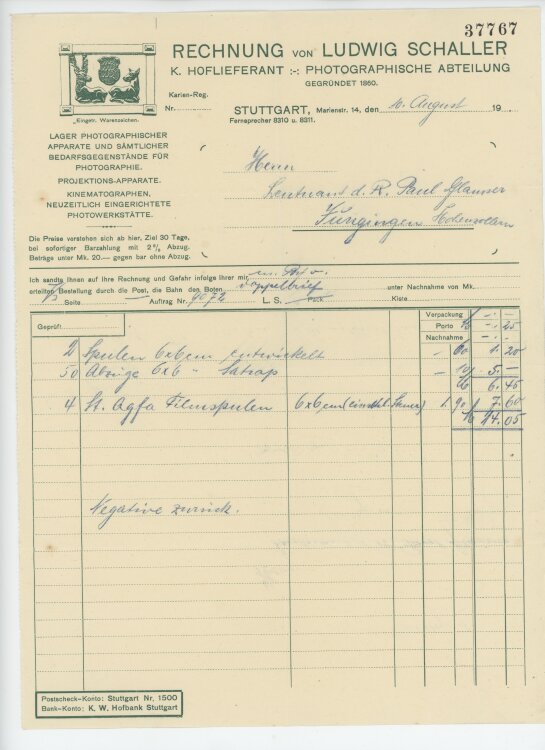 37767
RECHNUNG VON LUDWIG SCHALLER
K. HOFLIEFERANT :-: PHOTOGRAPHISCHE ABTEILUNG
GEGRÜNDET 1860.
Karien-Reg.
Nr.
"Eingetr. Warenzeichen.
STUTTGART, Marienstr. 14, den 10. August 19
Fernsprecher 8310 u. 8311.
LAGER PHOTOGRAPHISCHER
APPARATE UND SÄMTLICHER
BEDARFSGEGENSTÄNDE FÜR
PHOTOGRAPHIE.
PROJEKTIONS-APPARATE.
KINEMATOGRAPHEN,
NEUZEITLICH EINGERICHTETE
PHOTOWERKSTÄTTE.
Herrn
Leutnant d. R. Paul
Jungingen Hohenzollern
Die Preise verstehen sich ab hier, Ziel 30 Tage,
bei sofortiger Barzahlung mit 2% Abzug.
Beträge unter Mk. 20.— gegen bar ohne Abzug.
Ich sandte Ihnen auf Ihre Rechnung und Gefahr infolge Ihrer mir
erteilten Bestellung durch die Post, die Bahn den Boten Doppelbrief unter Nachnahme von Mk.
Seite Auftrag Nr. 9072 L. S. Pack Kiste
Geprüft:
Verpackung —.—
Porto —.25
Nachnahme —.—
2 Spulen 6x6 cm entwickelt — 60 1.20
50 Abzüge 6x6 " Satrap — 10 5.—
6.45
4 St. Agfa Filmspulen 6x6 cm (einschl. 1.90 7.60
14.05
Negative zurück.
Postscheck-Konto: Stuttgart Nr. 1500
Bank-Konto: K. W. Hofbank Stuttgart